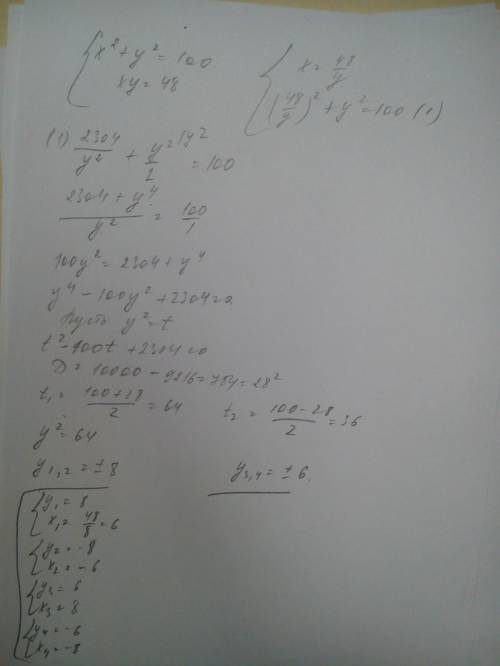 { x² + y² = 100
xy = 48
{ x = 48/y
(48/y)² + y² = 100 (1)
(1) 2304/y² + y² |y² / 1 = 100
2304 + y⁴ / y² = 100/1
100y² = 2304 + y⁴
y⁴ - 100y² + 2304 = 0
Пусть y² = t
t² - 100t + 2304 = 0
D = 10000 - 9216 = 784 = 28²
t₁ = 100+28 / 2 = 64
t₂ = 100-28 / 2 = 36
y² = 64
y₁,₂ = ± 8
y₃,₄ = ± 6.
{ y₁ = 8
x₁ = 48/8 = 6
{ y₂ = -8
x₂ = -6
{ y₃ = 6
x₃ = 8
{ y₄ = -6
x₄ = -8